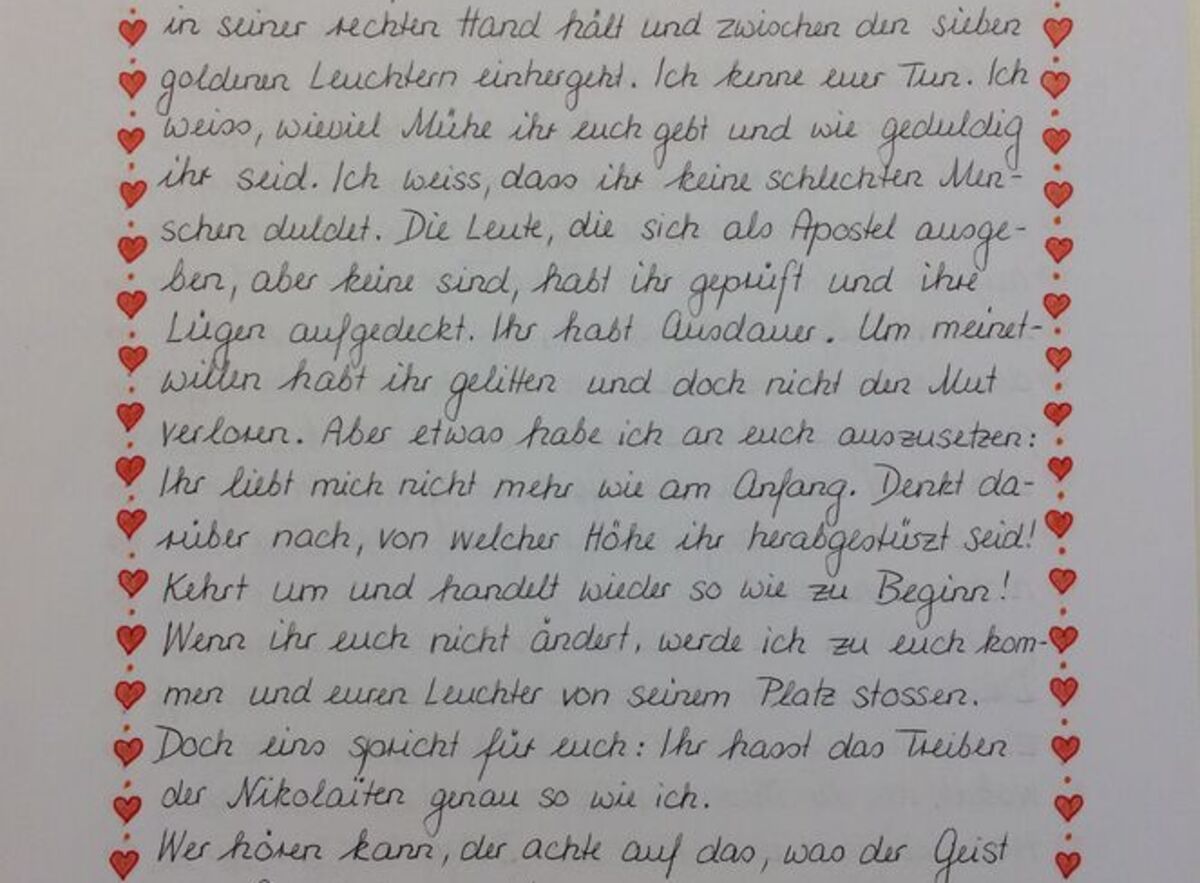 in seiner rechten Hand hält und zwischen den sieben
goldenen Leuchtern einhergeht. Ich kenne euer Tun. Ich
weiss, wieviel Mühe ihr euch gebt und wie geduldig
ihr seid. Ich weiss, dass ihr keine schlechten Men-
schen duldet. Die Leute, die sich als Apostel ausge-
ben, aber keine sind, habt ihr geprüft und ihre
Lügen aufgedeckt. Ihr habt Ausdauer. Um meinet-
willen habt ihr gelitten und doch nicht den Mut
verloren. Aber etwas habe ich an euch auszusetzen:
Ihr liebt mich nicht mehr wie am Anfang. Denkt da-
rüber nach, von welcher Höhe ihr herabgestürzt seid!
Kehrt um und handelt wieder so wie zu Beginn!
Wenn ihr euch nicht ändert, werde ich zu euch kom-
men und euren Leuchter von seinem Platz stossen.
Doch eins spricht für euch: Ihr hasst das Treiben
der Nikolaïten genau so wie ich.
Wer hören kann, der achte auf das, was der Geist